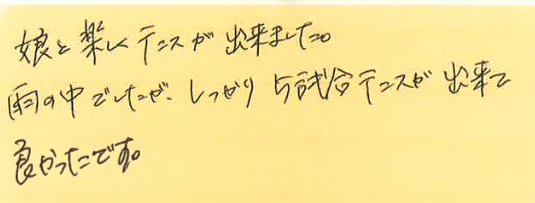 娘と楽しくテニスが出来ました。
雨の中でしたが、しっかり5試合テニスが出来て
良かったです。